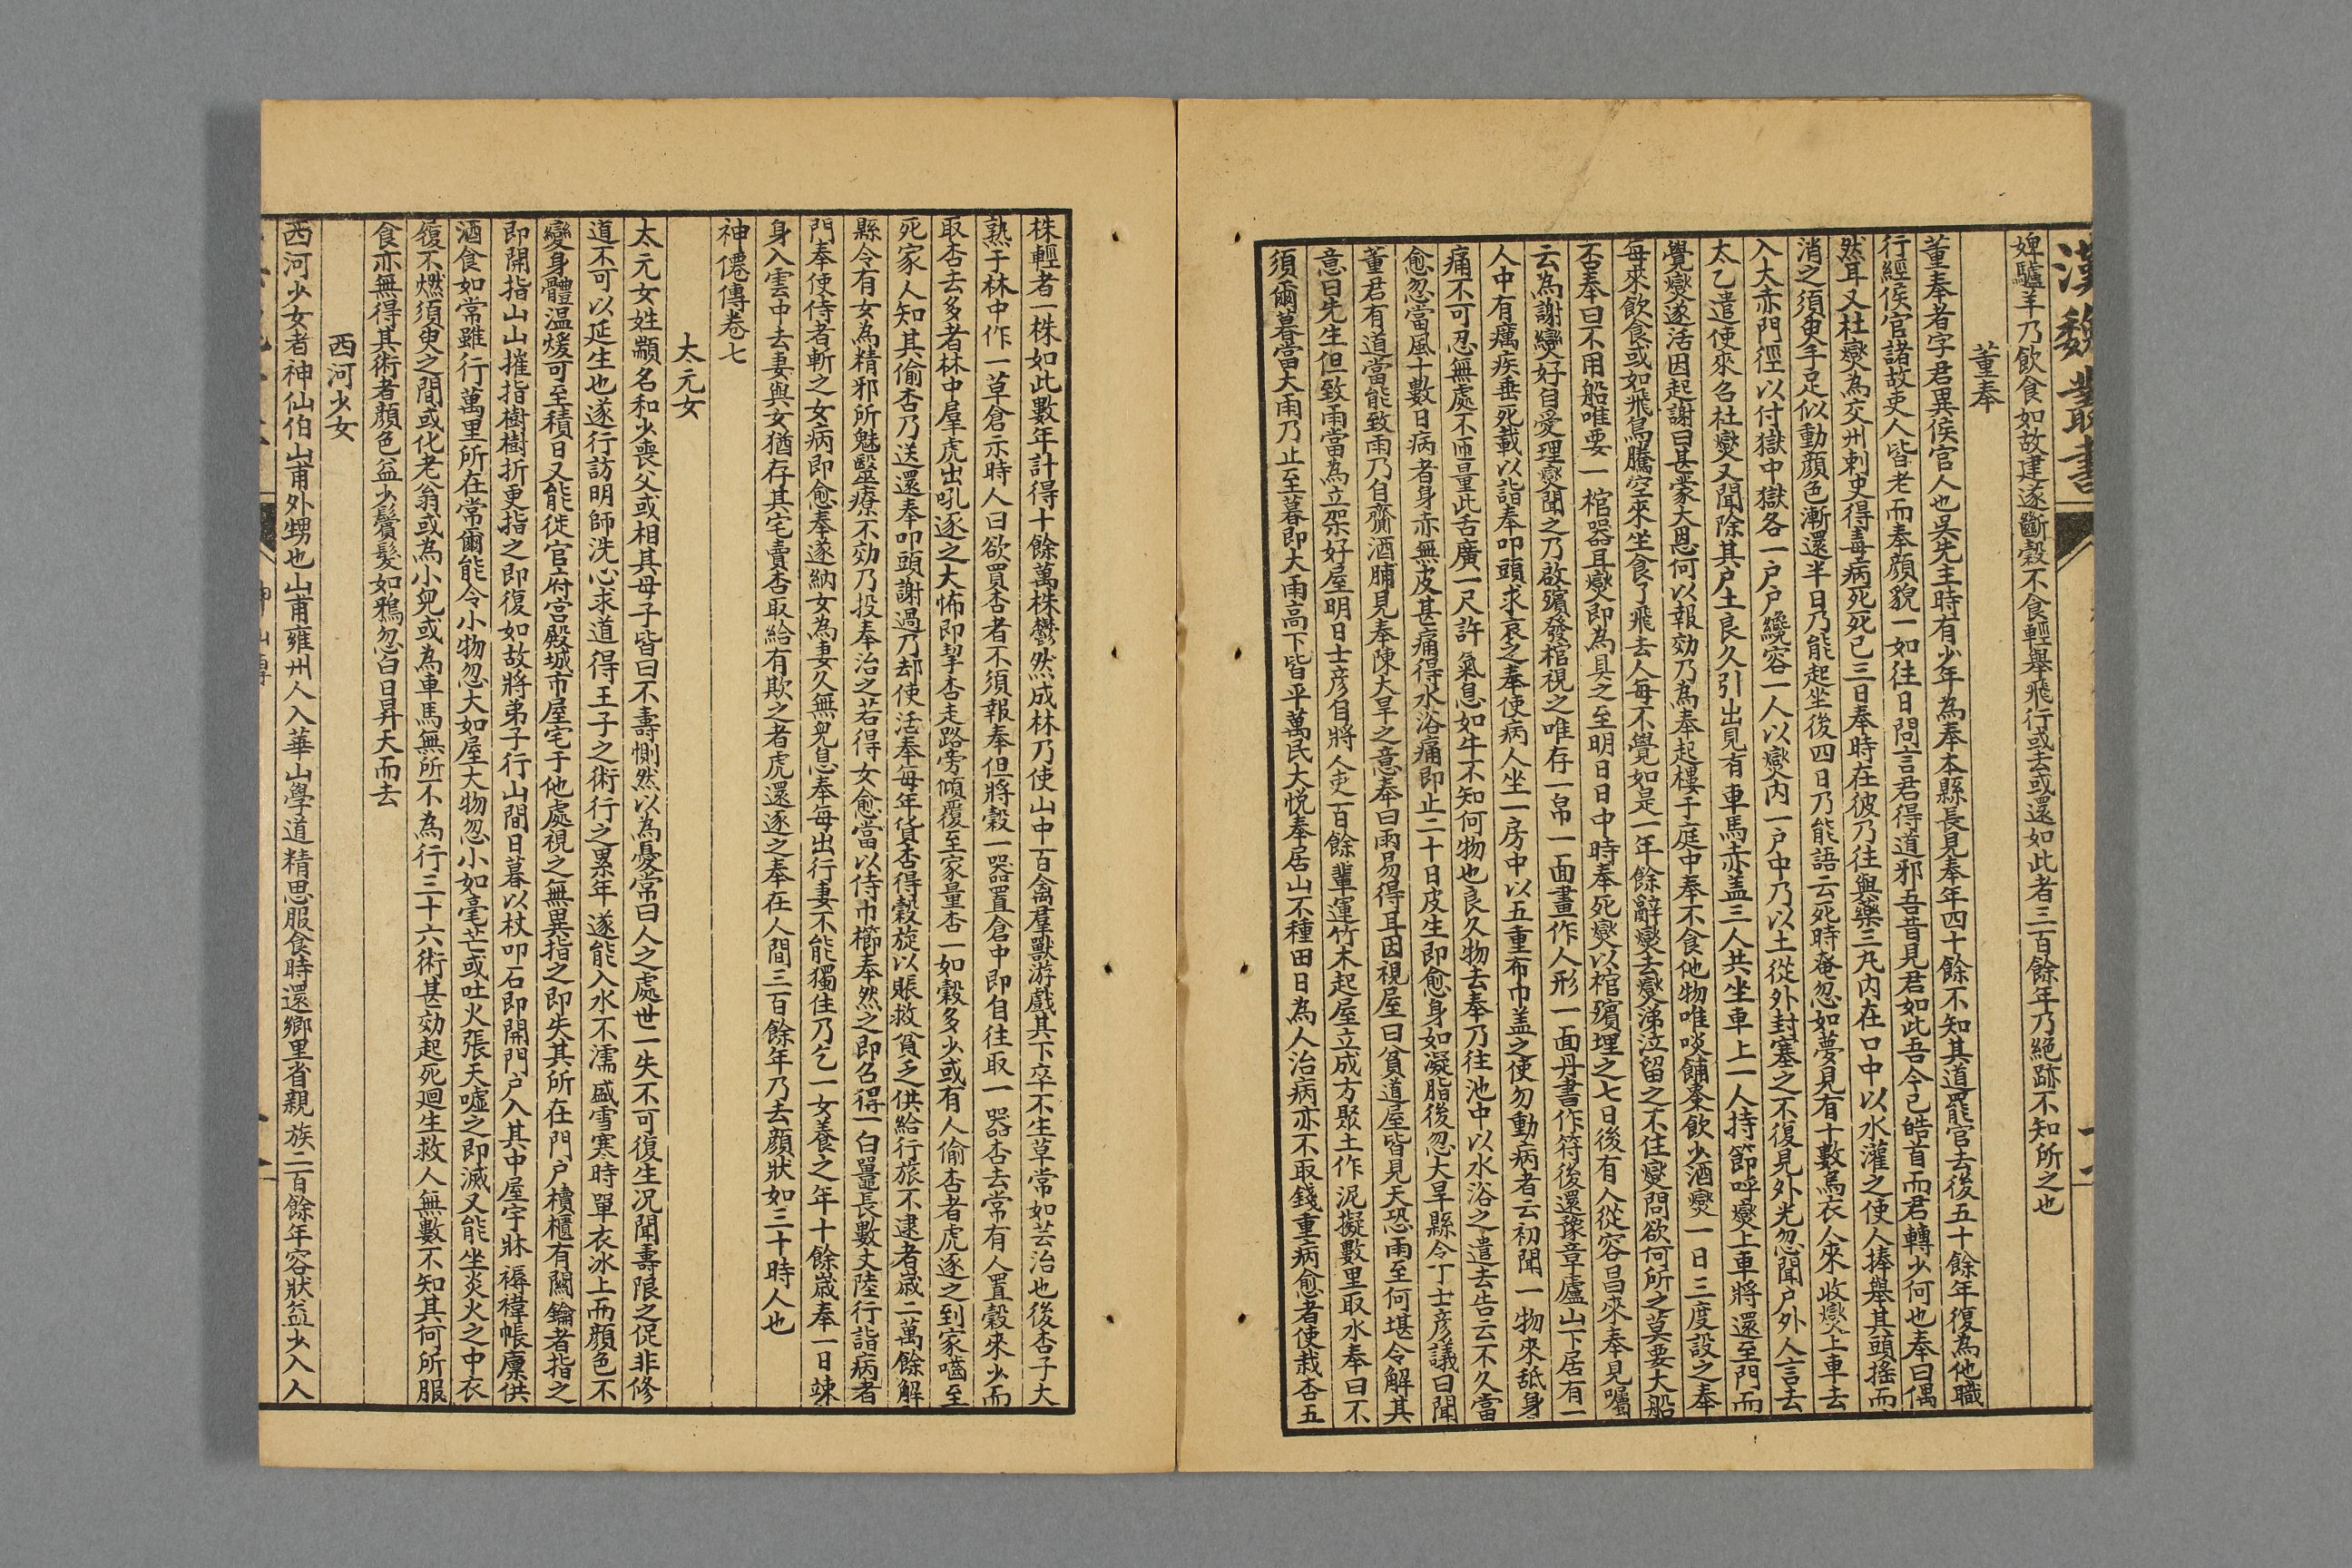 漢魏叢書
婢驢羊乃飲食如故建遂斷穀不食輕舉飛行或去或還如此者三百餘年乃絕跡不知所之也
董奉
董奉者字君異侯官人也吳先主時有少年為奉本縣長見奉年四十餘不知其道罷官去後五十餘年復為他職
行經侯官諸故吏人皆老而奉顏貌一如往日問言君得道邪吾昔見君如此吾今已皓首而君轉少何也奉曰偶
然耳又杜燮為交州刺史得毒病死死已三日奉時在彼乃往與藥三丸內在口中以水灌之使人捧舉其頭搖而
消之須臾手足似動顏色漸還半日乃能起坐後四日乃能語云死時奄忽如夢見有十數烏衣人來收燮上車去
入大赤門徑以付獄中獄各一戶戶纔容一人以燮內一戶中乃以土從外封塞之不復見外光忽聞戶外人言去
太乙遣使來召杜燮又聞除其戶土良久引出見有車馬赤蓋三人共坐車上一人持節呼燮上車將還至門而
覺燮遂活因起謝曰甚蒙大恩何以報効乃為奉起樓于庭中奉不食他物唯啖脯棗飲少酒燮一日三度設之奉
每來飲食或如飛鳥騰空來坐食了飛去人每不覺如是一年餘辭燮去燮涕泣留之不住燮問欲何所之莫要大船
否奉曰不用船唯要一棺器耳燮即為具之至明日日中時奉死燮以棺殯埋之七日後有人從容昌來奉見囑
云為謝燮好自愛理燮聞之乃啟殯發棺視之唯存一帛一面畫作人形一面丹書作符後還豫章廬山下居有一
人中有癘疾垂死載以詣奉叩頭求哀之奉使病人坐一房中以五重布巾蓋之使勿動病者云初聞一物來舐身
痛不可忍無處不匝量此舌廣一尺許氣息如牛不知何物也良久物去奉乃往池中以水浴之遣去告云不久當
愈忽當風十數日病者身赤無皮甚痛得水浴痛即止二十日皮生即愈身如凝脂後忽大旱縣令丁士彥議曰聞
董君有道當能致雨乃自齎酒脯見奉陳大旱之意奉曰雨易得耳因視屋曰貧道屋皆見天恐雨至何堪令解其
意曰先生但致雨當為立架好屋明日士彥自將人吏百餘輩運竹木起屋立成方聚土作泥擬數里取水奉曰不
須爾暮當大雨乃止至暮即大雨高下皆平萬民大悅奉居山不種田日為人治病亦不取錢重病愈者使栽杏五
株輕者一株如此數年計得十餘萬株鬱然成林乃使山中百禽羣獸游戲其下卒不生草常如芸治也後杏子大
熟于林中作一草倉示時人曰欲買杏者不須報奉但將穀一器置倉中即自往取一器杏去常有人置穀來少而
取杏去多者林中羣虎出吼逐之大怖即挈杏走路旁傾覆至家量杏一如穀多少或有人偷杏者虎逐之到家嚙至
死家人知其偷杏乃送還奉叩頭謝過乃却使活奉每年貨杏得穀旋以賑救貧乏供給行旅不逮者歲二萬餘解
縣令有女為精邪所魅醫療不効乃投奉治之若得女愈當以侍巾櫛奉然之即召得一白鼉長數丈陸行詣病者
門奉使侍者斬之女病即愈奉遂納女為妻久無兒息奉每出行妻不能獨住乃乞一女養之年十餘歲奉一日竦
身入雲中去妻與女猶存其宅賣杏取給有欺之者虎還逐之奉在人間三百餘年乃去顏狀如三十時人也
神僊傳卷七
太元女
太元女姓顓名和少喪父或相其母子皆曰不壽惻然以為憂常曰人之處世一失不可復生況聞壽限之促非修
道不可以延生也遂行訪明師洗心求道得王子之術行之累年遂能入水不濡盛雪寒時單衣冰上而顏色不
變身體溫煖可至積日又能徙官府宮殿城市屋宅于他處視之無異指之即失其所在門戶櫝櫃有關鑰者指之
即開指山山摧指樹樹折更指之即復如故將弟子行山間日暮以杖叩石即開門戶入其中屋宇牀褥幃帳廩供
酒食如常雖行萬里所在常爾能令小物忽大如屋大物忽小如毫芒或吐火張天噓之即滅又能坐炎火之中衣
履不燃須臾之間或化老翁或為小兒或為車馬無所不為行三十六術甚効起死迴生救人無數不知其何所服
食亦無得其術者顏色益少鬢髮如鴉忽白日昇天而去
西河少女
西河少女者神仙伯山甫外甥也山甫雍州人入華山學道精思服食時還鄉里省親族二百餘年容狀益少入人